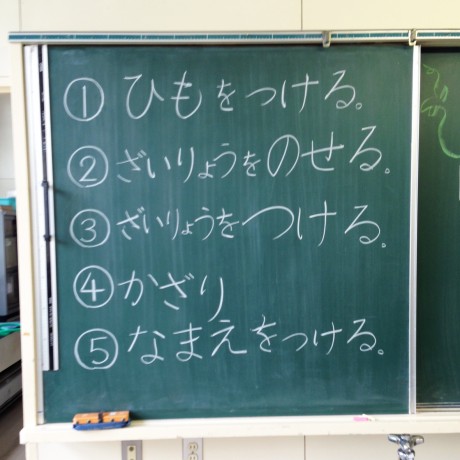 ① ひもをつける。
② ざいりょうをのせる。
③ ざいりょうをつける。
④ かざり
⑤ なまえをつける。